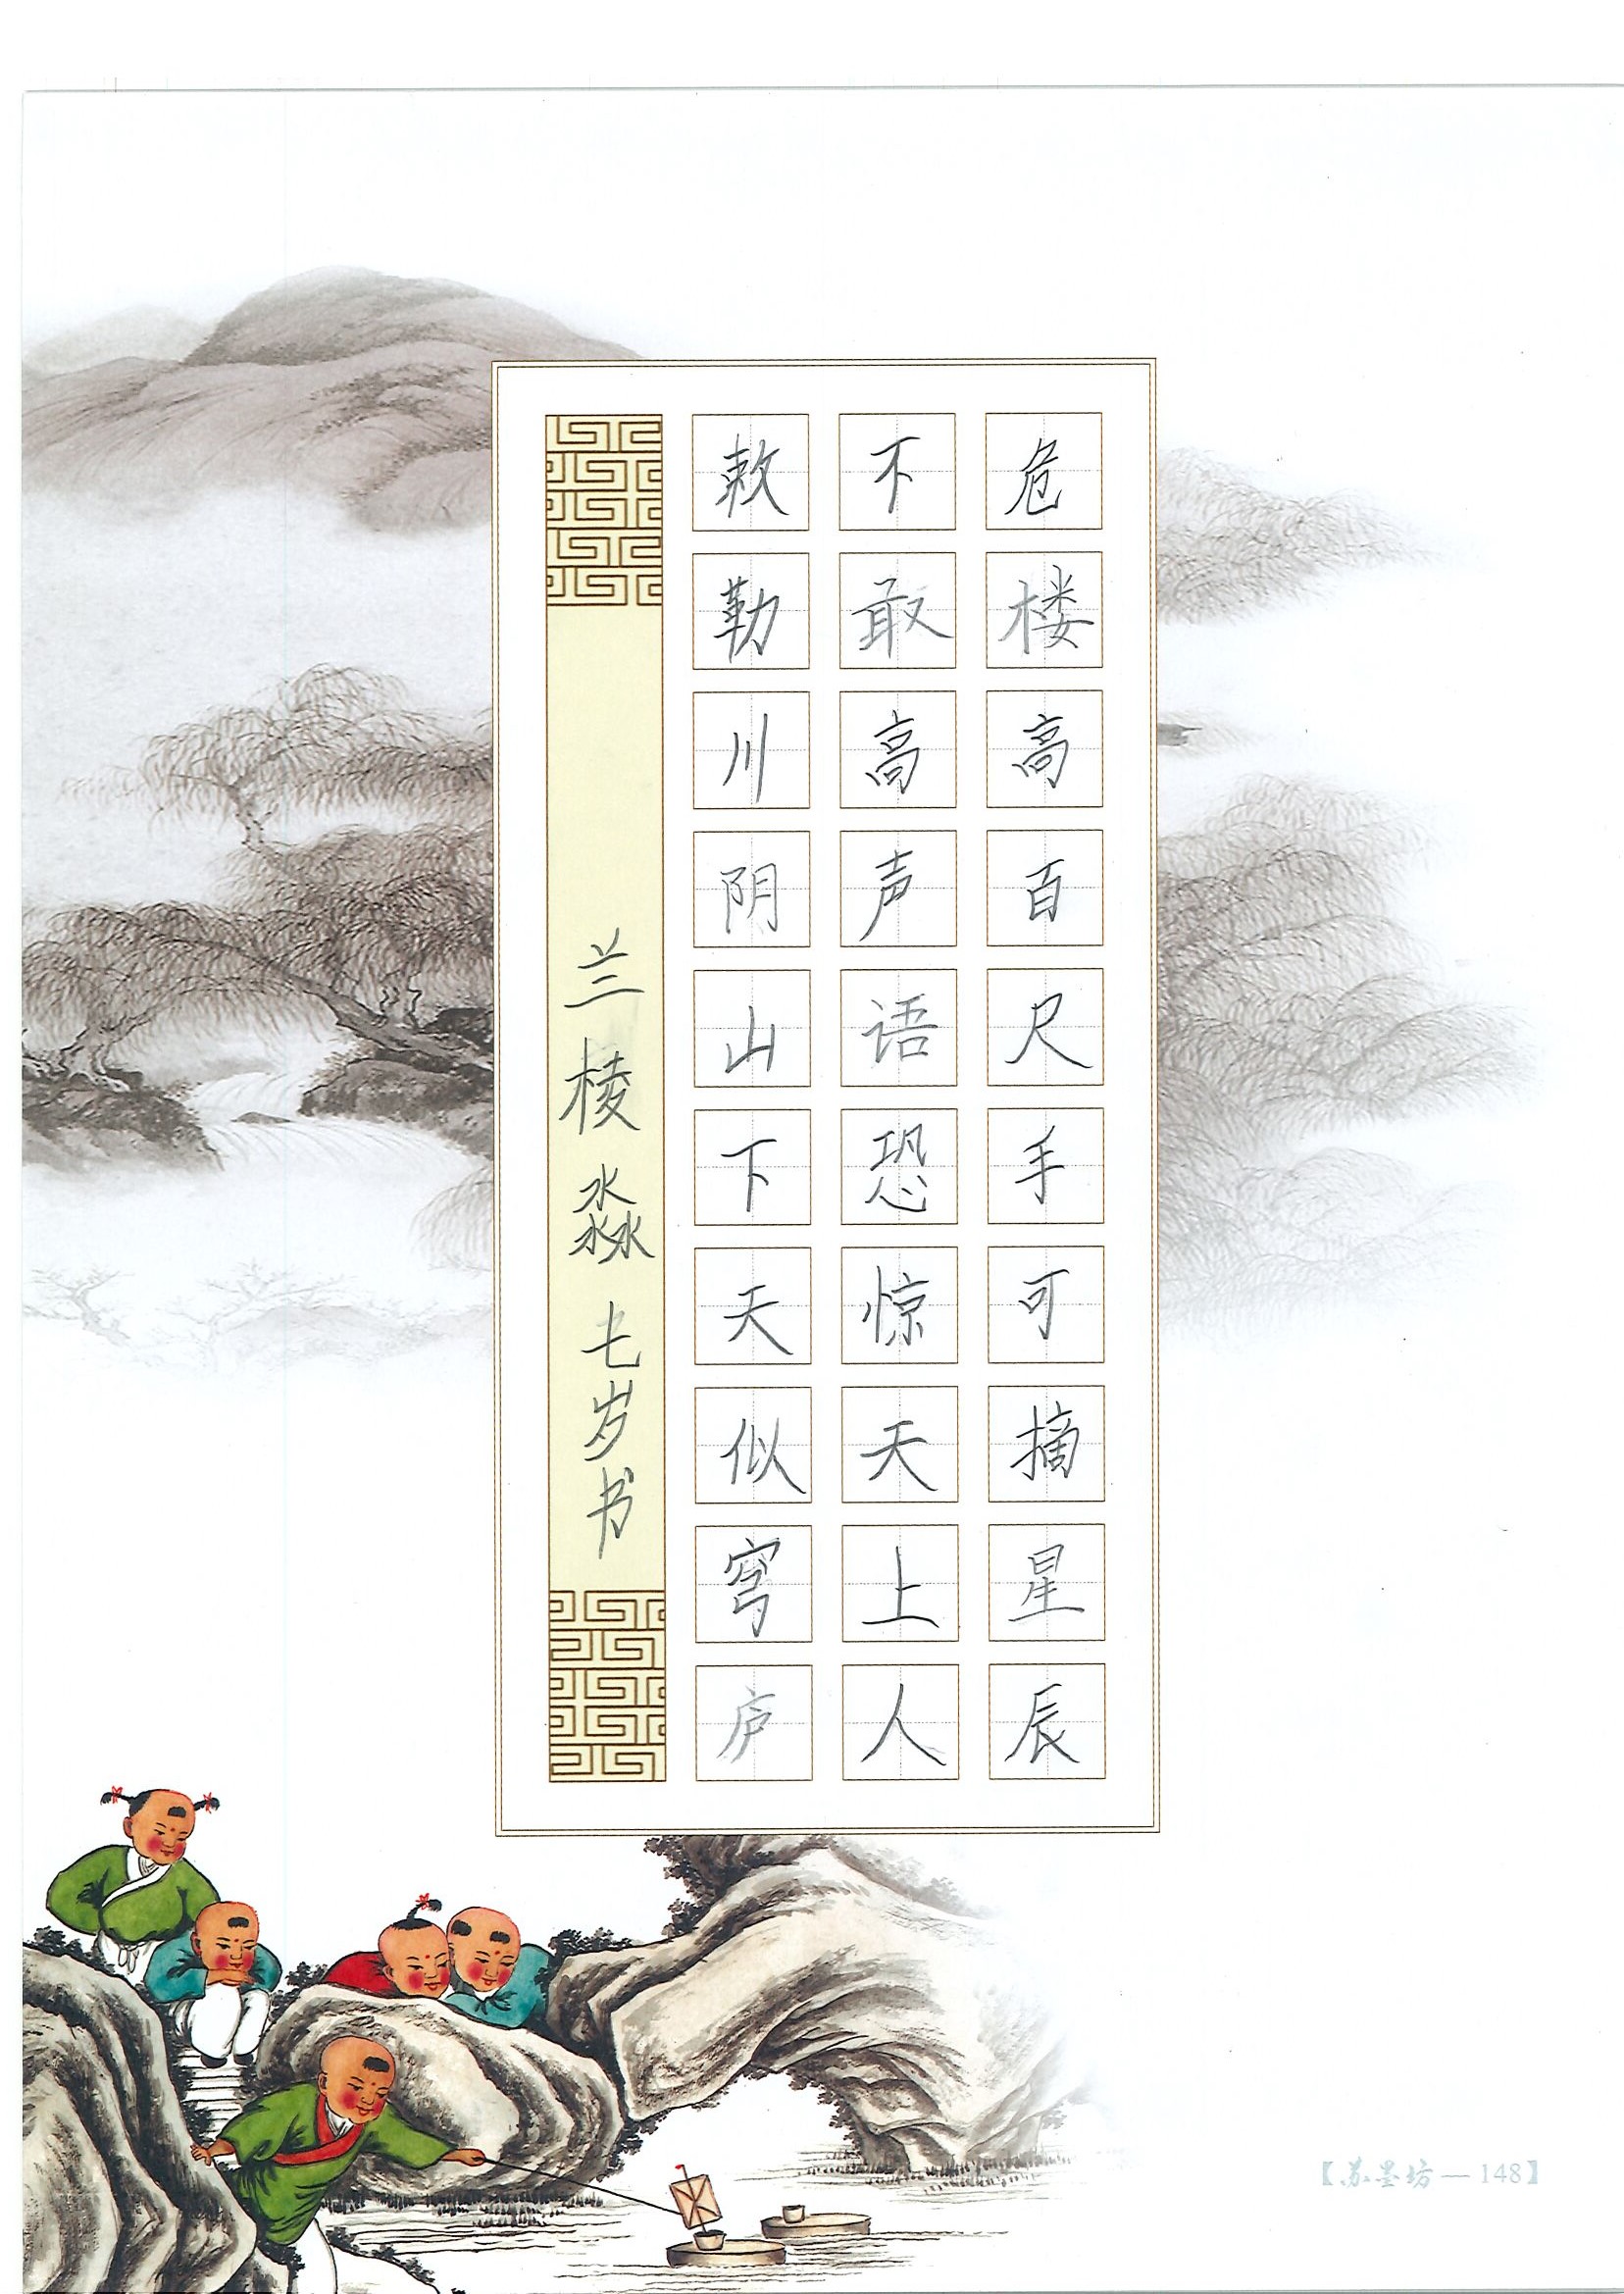 危楼高百尺手可摘星辰
不敢高声语恐惊天上人
敕勒川阴山下天似穹庐
兰棱淼七岁书
【苏墨坊—148】